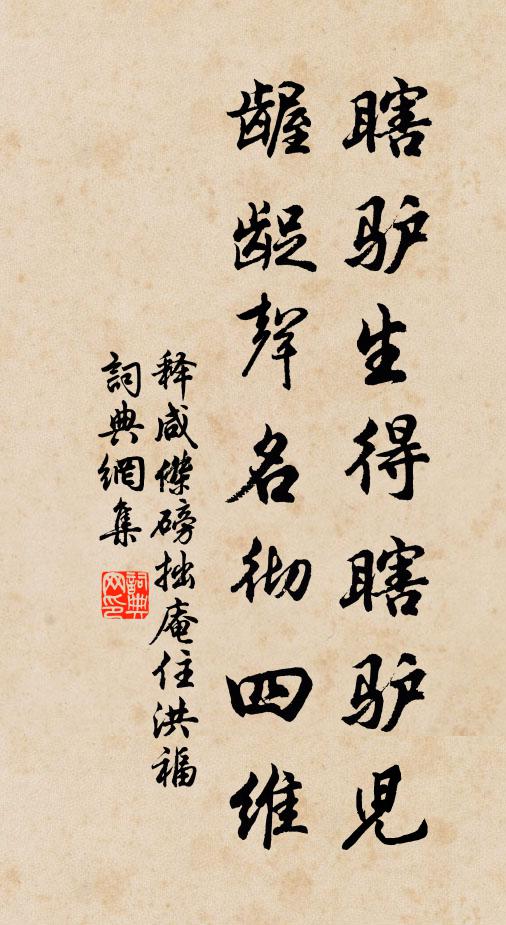 瞎驴生得瞎驴児
龌龊聲名彻四维
释咸傑磅拙庵住洪福
詞典網集
詞典网印